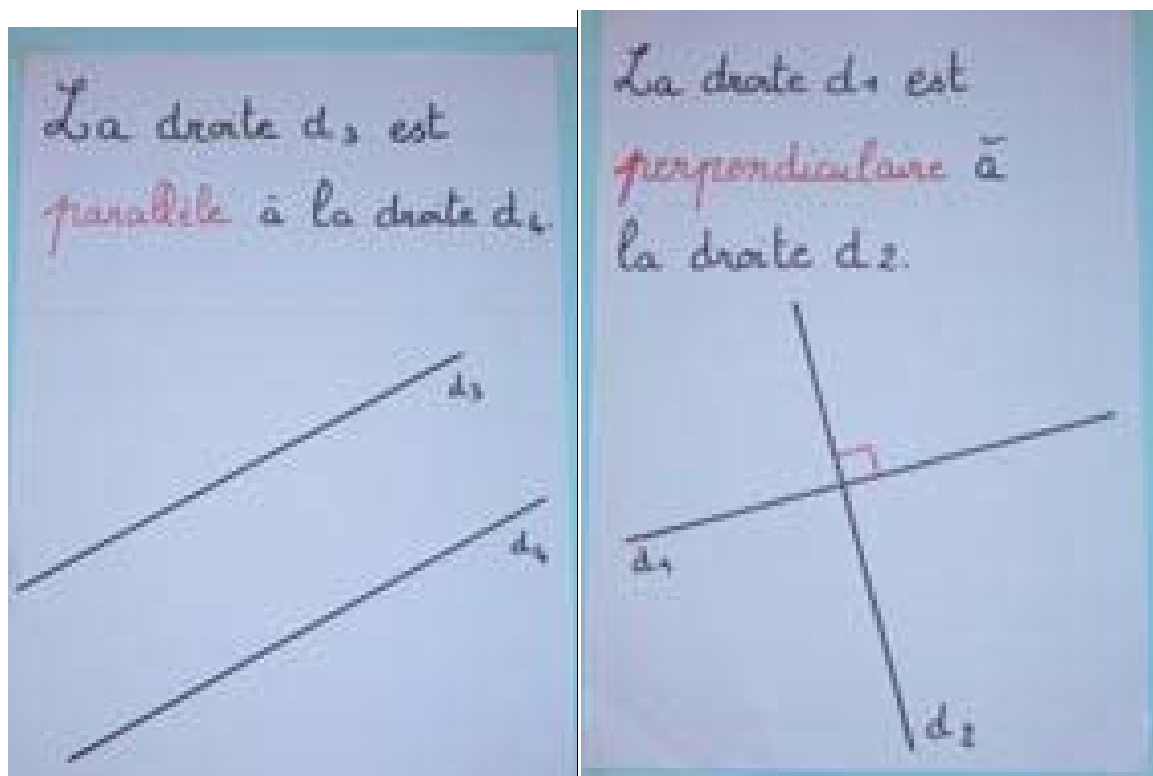 La droite d₃ est
parallèle à la droite d₄.
d₃
d₄
La droite d₁ est
perpendiculaire à
la droite d₂.
d₁
d₂